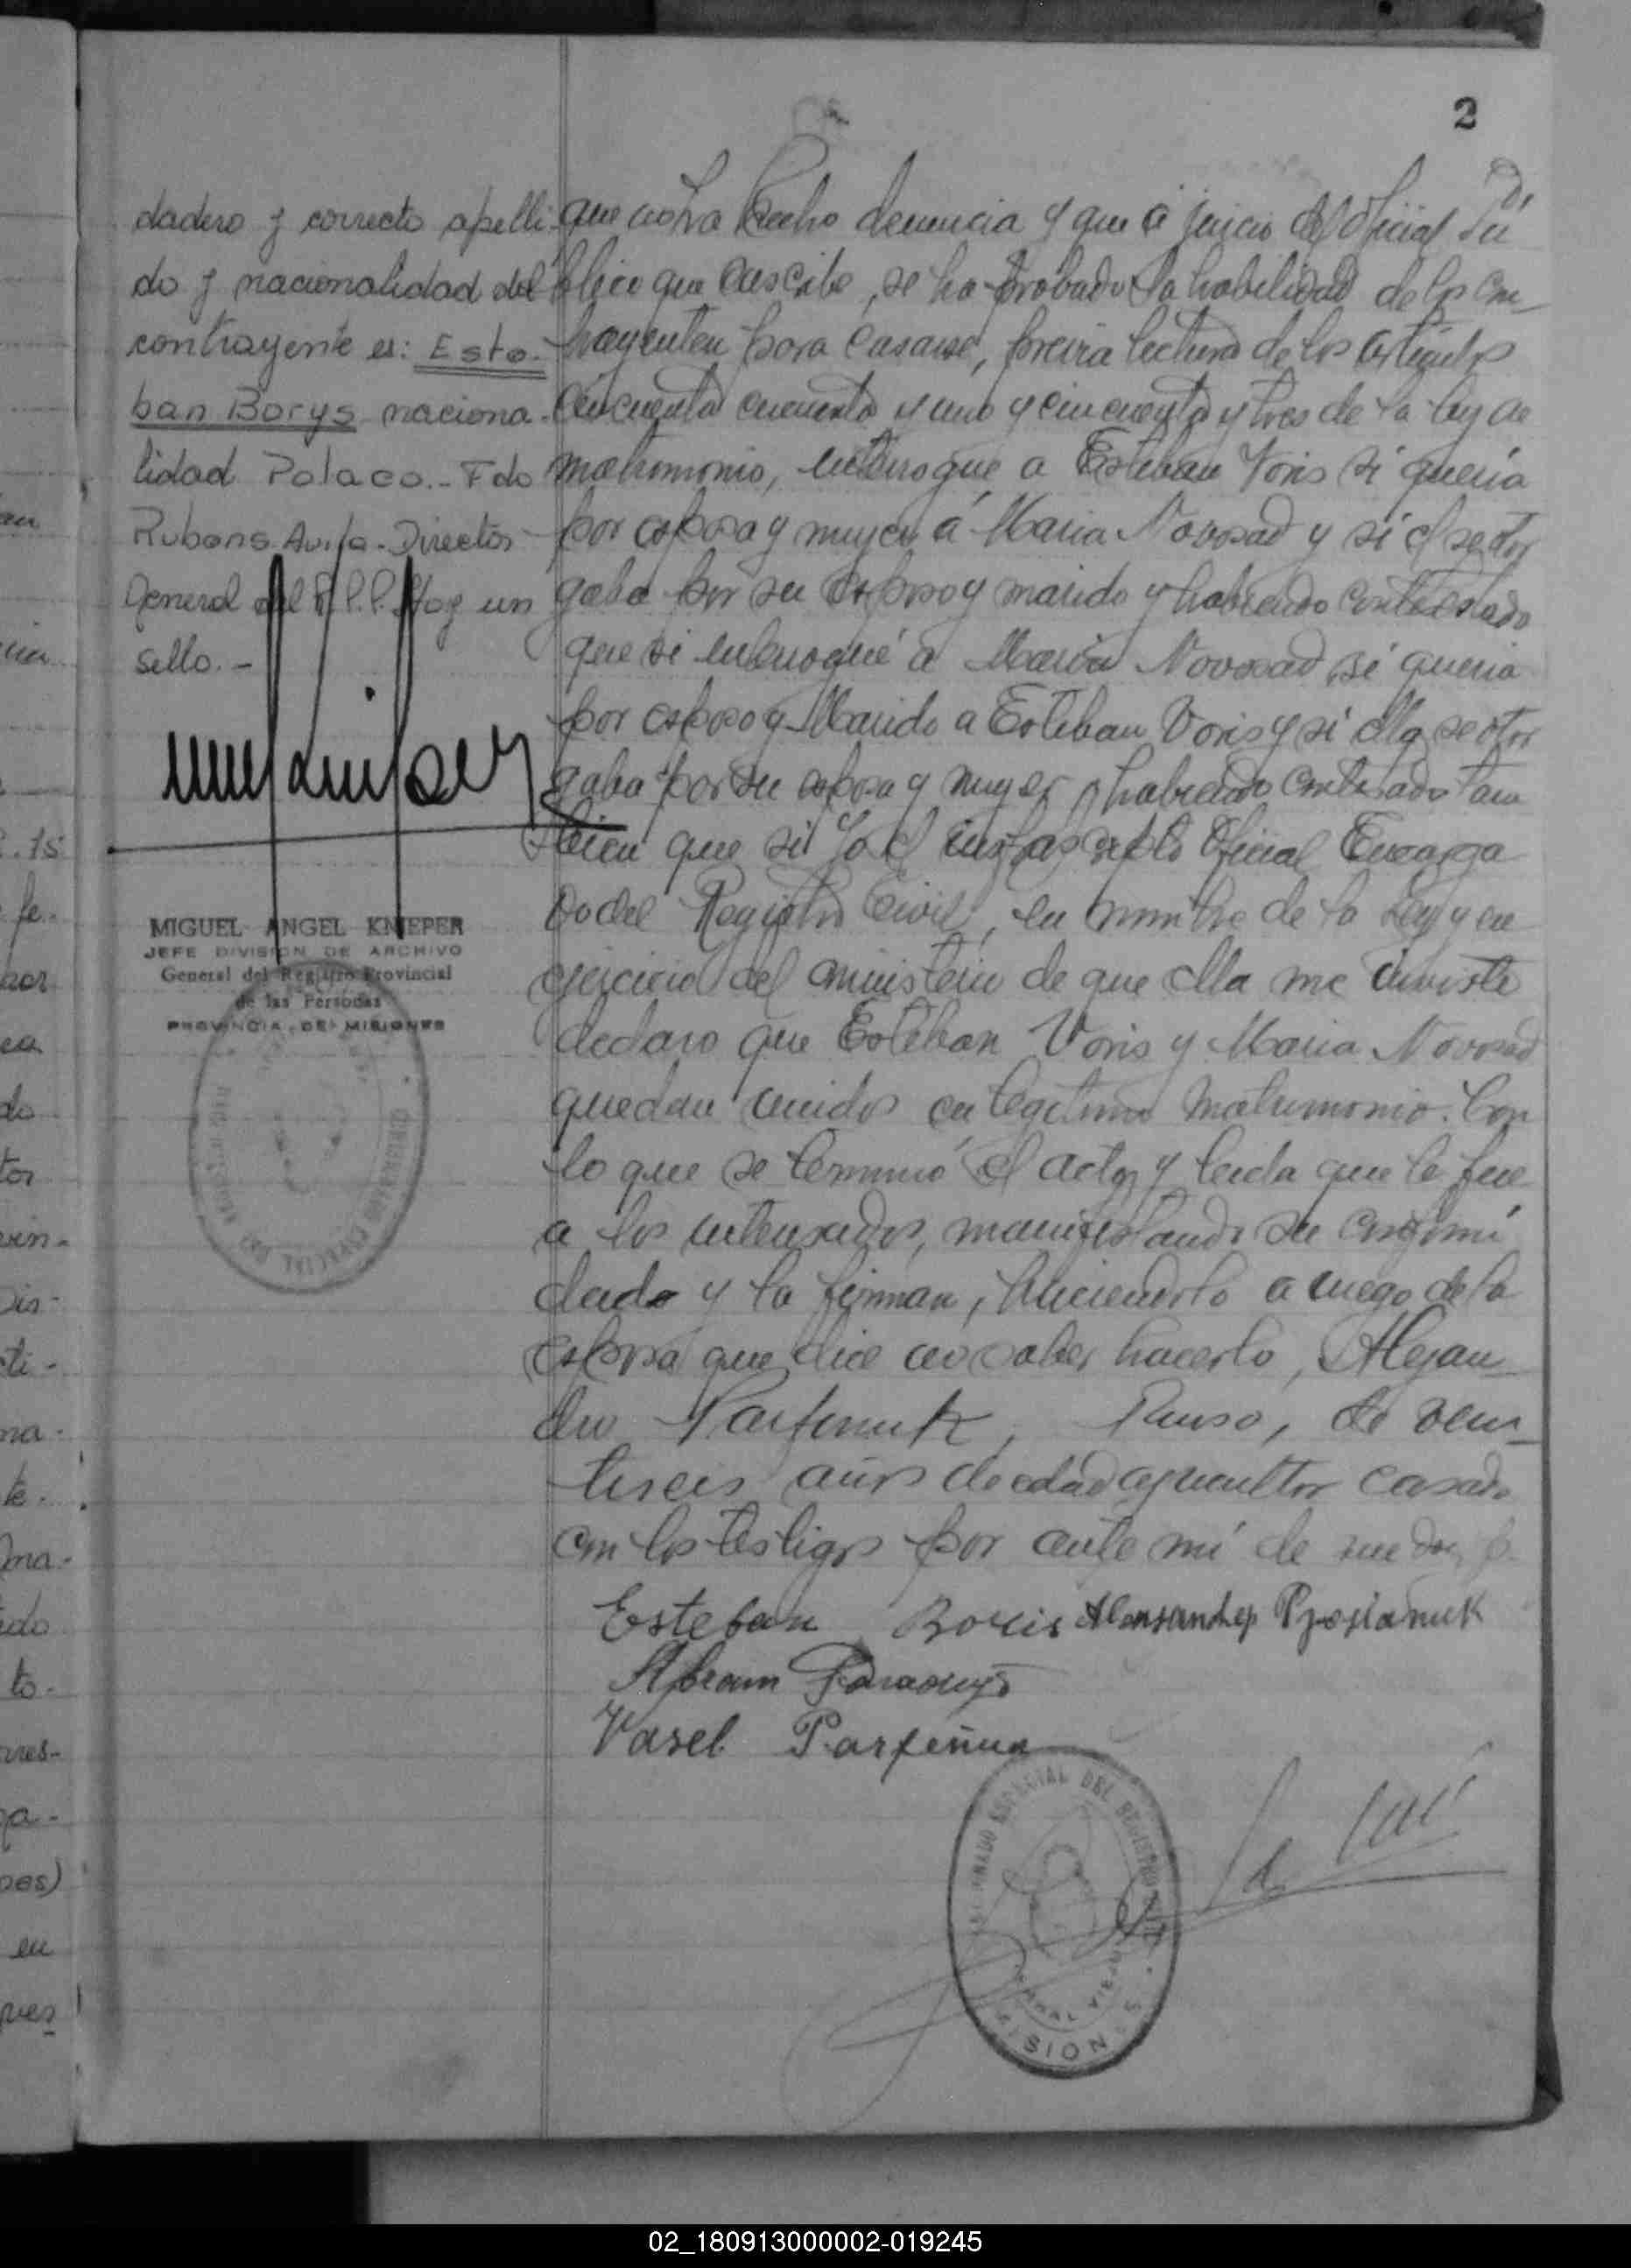 2
dadero y correcto apelli-
do y nacionalidad del
contrayente es: Este-
ban Borys naciona-
lidad Polaco.- Fdo
Rubens Avila - Director
General del R.P.P. Hay un
sello.-
MIGUEL ANGEL KNIEPER
JEFE DIVISION DE ARCHIVO
General del Registro Provincial
de las Personas
PROVINCIA DE MISIONES
que no ha hecho denuncia y que a juicio del Oficial Pú
blico que suscribe, se ha probado la habilidad de los con
trayentes para casarse, previa lectura de los artículos
cincuenta cincuenta y uno y cincuenta y tres de la ley de
matrimonio, interrogué a Esteban Voris si quería
por esposa y mujer á Maria Novosad y si el se otor
gaba por su esposo y marido y habiendo contestado
que si interrogué a Maria Novosad, si queria
por esposo y Marido a Esteban Voris y si ella se otor
gaba por su esposa y mujer y habiendo contestado tam
bien que si Yo el infrascripto Oficial Encarga
do del Registro Civil, en nombre de la Ley y en
ejercicio del ministerio de que ella me inviste
declaro que Esteban Voris y Maria Novosad
quedan unidos en legitimo matrimonio. Con
lo que se terminó el acto, y leida que le fue
a los interesados, manifestando su conformi
dad y la firman, haciendolo a ruego de la
esposa que dice no saber hacerlo, Alejan
dro Parfeniuk, Ruso, de vein
tiseis años de edad agricultor casado
con los testigos por ante mí de que doy fe
Esteban Boris
Vasel
ESPECIAL DEL REGISTRO CIVIL
MISIONES
02_180913000002-019245